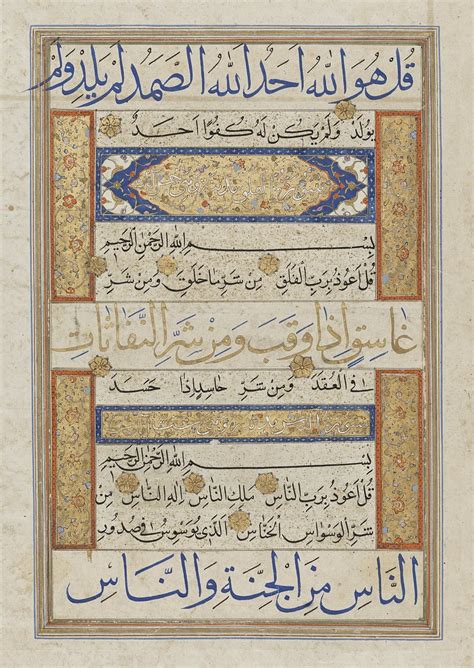 قُلْ هُوَ اللهُ اَحَدٌ اَللهُ الصَّمَدُ لَمْ يَلِدْ وَلَمْ
يُولَدْ وَلَمْ يَكُنْ لَهُ كُفُوًا اَحَدٌ
بِسْمِ اللهِ الرَّحْمٰنِ الرَّحِيمِ
قُلْ اَعُوذُ بِرَبِّ الْفَلَقِ مِنْ شَرِّ مَا خَلَقَ وَمِنْ شَرِّ
غَاسِقٍ اِذَا وَقَبَ وَمِنْ شَرِّ النَّفَّاثَاتِ
فِي الْعُقَدِ وَمِنْ شَرِّ حَاسِدٍ اِذَا حَسَدَ
بِسْمِ اللهِ الرَّحْمٰنِ الرَّحِيمِ
قُلْ اَعُوذُ بِرَبِّ النَّاسِ مَلِكِ النَّاسِ اِلٰهِ النَّاسِ مِنْ
شَرِّ الْوَسْوَاسِ الْخَنَّاسِ اَلَّذِي يُوَسْوِسُ فِي صُدُورِ
النَّاسِ مِنَ الْجِنَّةِ وَالنَّاسِ